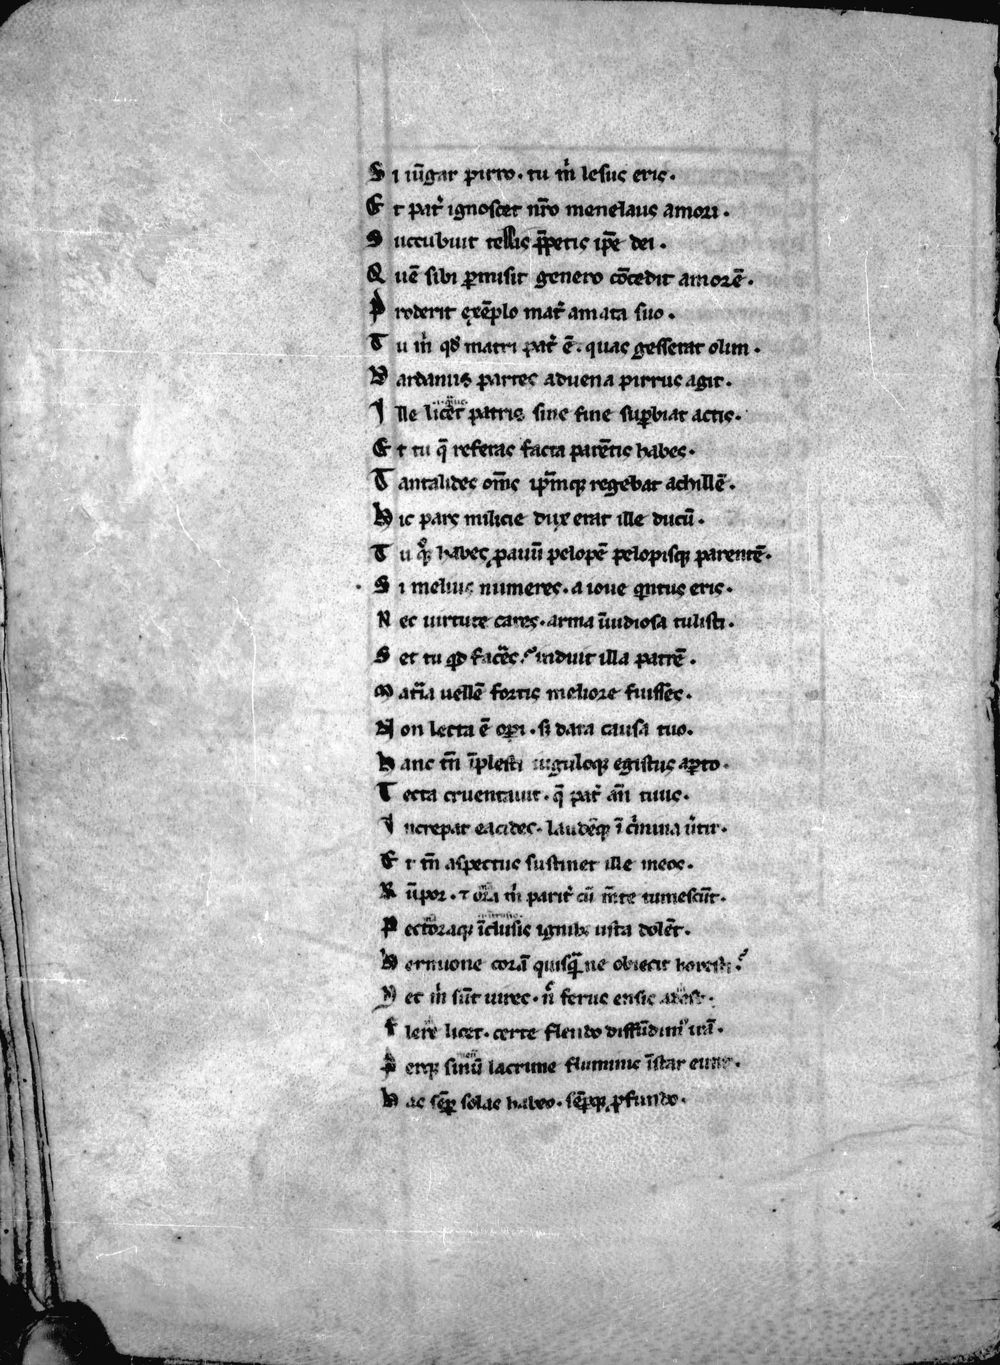 S i iūgar pirro · tu m̄ lesus eris ·
E t pat̄ ignoscet nr̄o menelaus amori ·
S uccubuit tel̄is p̄petis ip̄e dei ·
Q uē sibi ꝑmisit genero cōcedit amorē ·
P roderit exēplo mat̄ amata suo ·
T u m̄ qd̄ matri pat̄ ē · quas gesserat olim ·
D ardanius partes aduena pirrus agit ·
I lle licet patris sine fine suꝑbiat actis ·
E t tu q̄ referas facta parētis habes ·
T antalides om̄s ip̄mq regebat achillē ·
H ic pars milicie dux erat ille ducū ·
T u qͦq habes ꝓauū pelopē pelopisq parentē ·
S i melius numeres · a ioue qͥntus eris ·
N ec uirtute cares · arma īuidiosa tulisti ·
S et tu qd faceres induit illa patrē ·
M at̄ia uellē fortis meliore fuisses ·
N on lecta ē oꝑi · s̄ data causa tuo ·
H anc tn̄ īplesti iuguloq egistus aꝑto ·
T ecta cruentauit · q̄ pat̄ an̄ tuus ·
I ncrepat eacides · laudēq ī c̄mina ūtit ·
E t tn̄ aspectus sustinet ille meos ·
R ūpor · ⁊ ora m̄ parit̄ cū m̄te tumescūt ·
P ectoraq īclusis ignib; usta dolēt ·
H ermione corā quisq̄ne obiecit horesti
N ec m̄ sūt uires · n̄ ferus ensis adest ·
F lere licet · certe flendo diffūdimꝰ irā ·
P erq sinū lacrime fluminis īstar
H as sēꝑ solas habeo · sēꝑq ꝓfundo ·